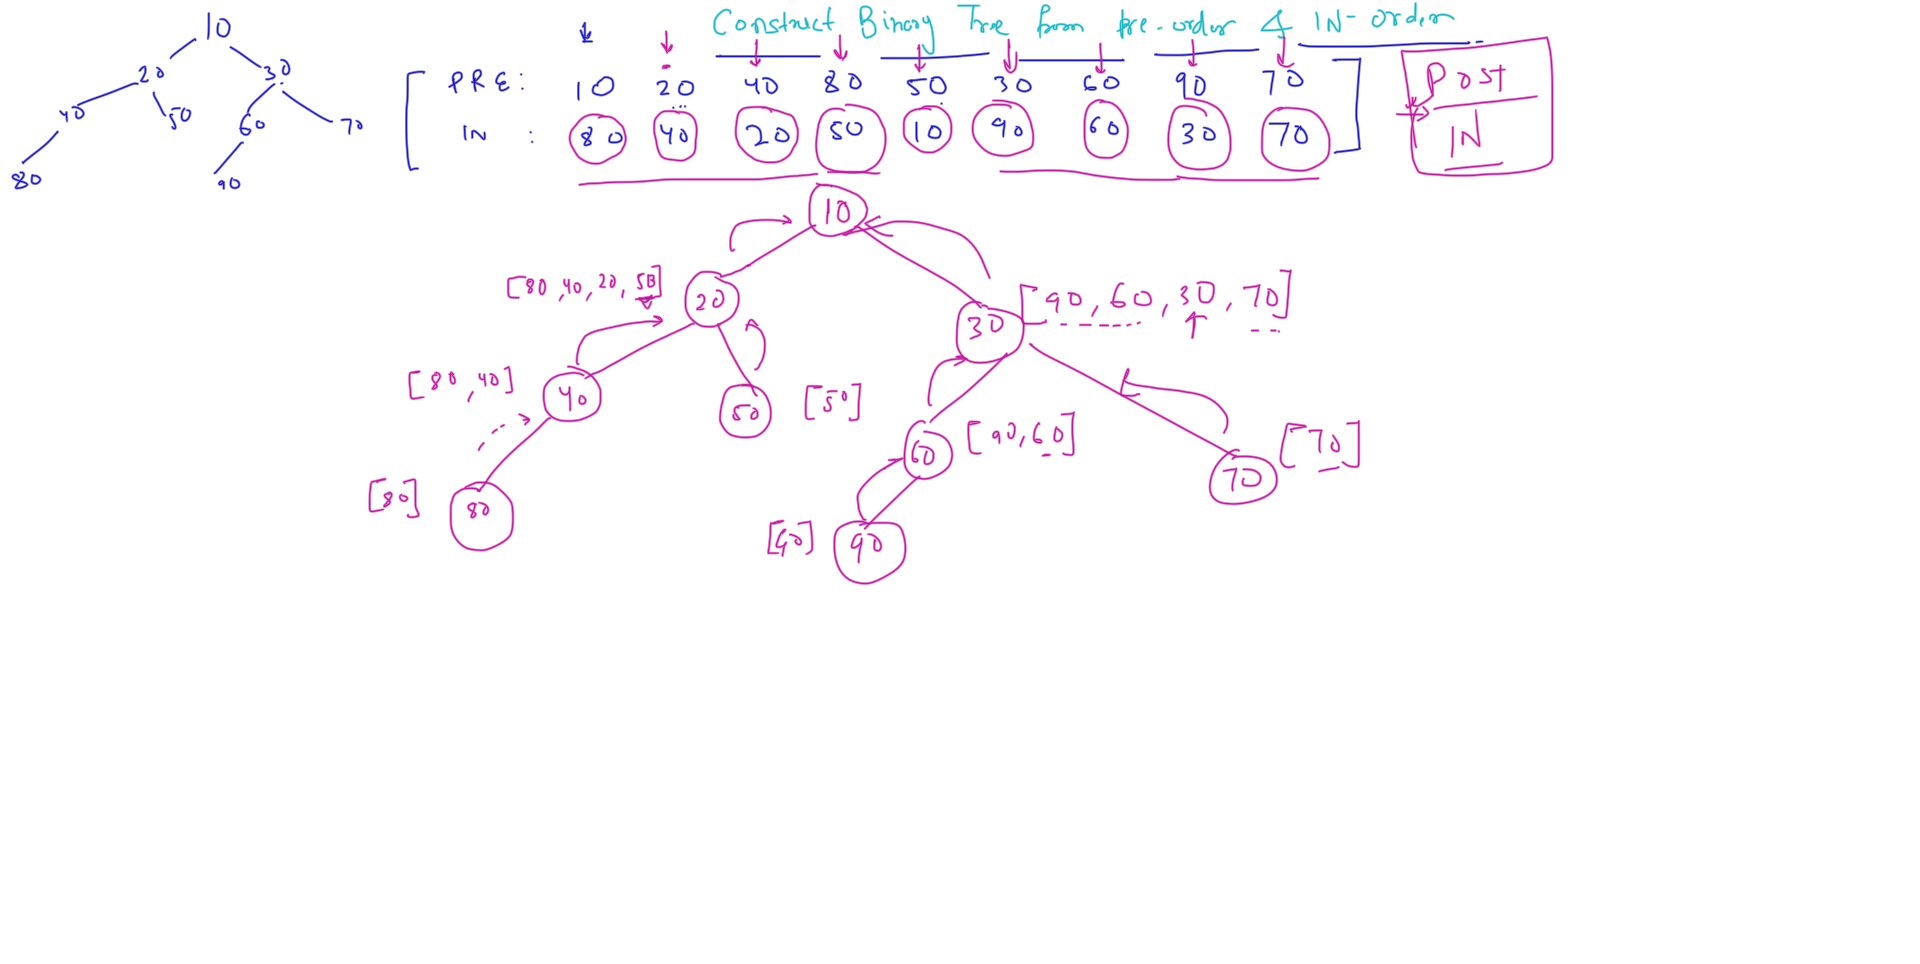 Construct Binary Tree from Pre-order & IN-Order
10
20 30
40 50 60 70
80 90
PRE: 10 20 40 80 50 30 60 90 70
IN : 80 40 20 50 10 90 60 30 70
Post
IN
10
[80,40,20,50] 20
30 [90,60,30,70]
[80,40] 40
50 [50]
60 [90,60]
70 [70]
[80] 80
[90] 90